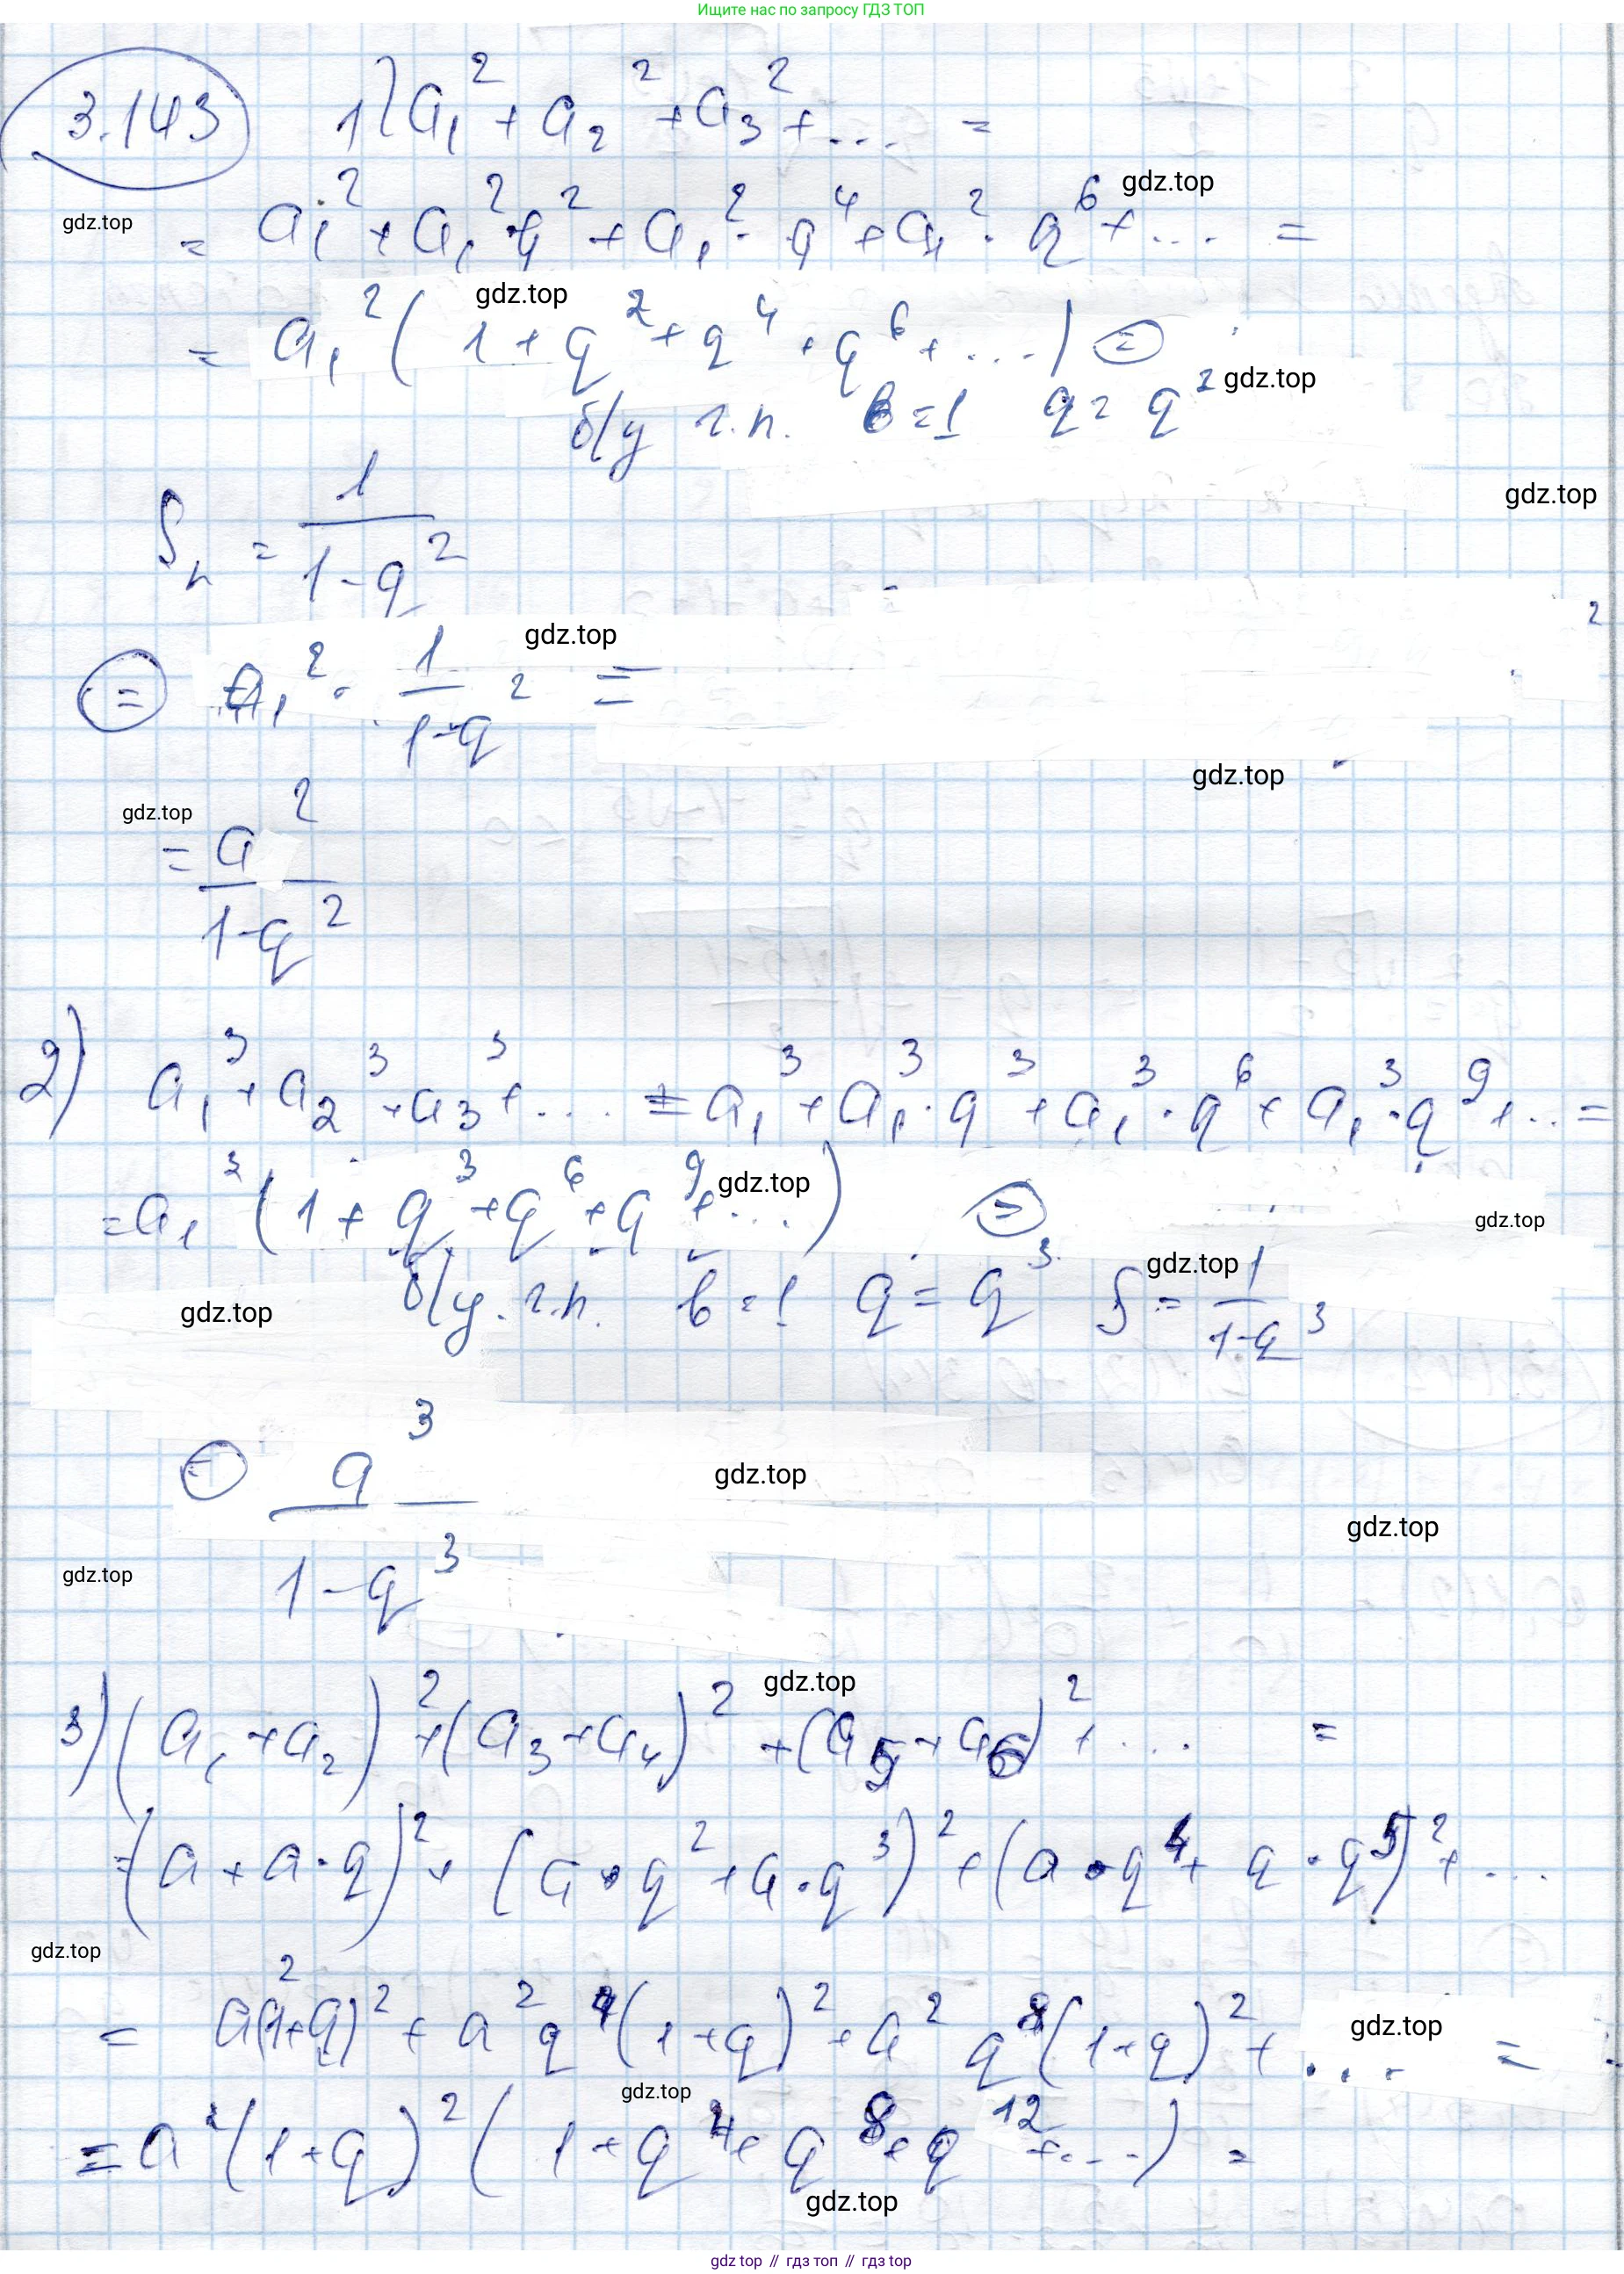 Ищите нас по запросу ГДЗ ТОП
3.143 1) a₁² + a₂² + a₃² + ... =
gdz.top
gdz.top
= a₁² + a₁²·q² + a₁²·q⁴ + a₁²·q⁶ + ... =
gdz.top
= a₁² (1 + q² + q⁴ + q⁶ + ...) ⊜
gdz.top
б/у г.п. b=1 q = q²
gdz.top
Sₙ = 1/(1-q²)
gdz.top
⊜ a₁² · 1/(1-q²) =
gdz.top
gdz.top
= a²/(1-q²)
2) a₁³ + a₂³ + a₃³ + ... = a₁³ + a₁³·q³ + a₁³·q⁶ + a₁³·q⁹ + ... =
= a₁³ (1 + q³ + q⁶ + q⁹ + ...) ⊜
gdz.top
gdz.top
б/у. г.п. b=1 q = q³ S = 1/(1-q³)
gdz.top
gdz.top
⊜ a³/(1-q³)
gdz.top
gdz.top
gdz.top
gdz.top
3) (a₁+a₂)² + (a₃+a₄)² + (a₅+a₆)² + ... =
= (a + a·q)² + (a·q² + a·q³)² + (a·q⁴ + a·q⁵)² + ...
gdz.top
= a²(1+q)² + a²q⁴(1+q)² + a²q⁸(1+q)² + ... =
gdz.top
gdz.top
= a²(1+q)² (1 + q⁴ + q⁸ + q¹² + ...) =
gdz.top
gdz top // гдз топ // гдз top